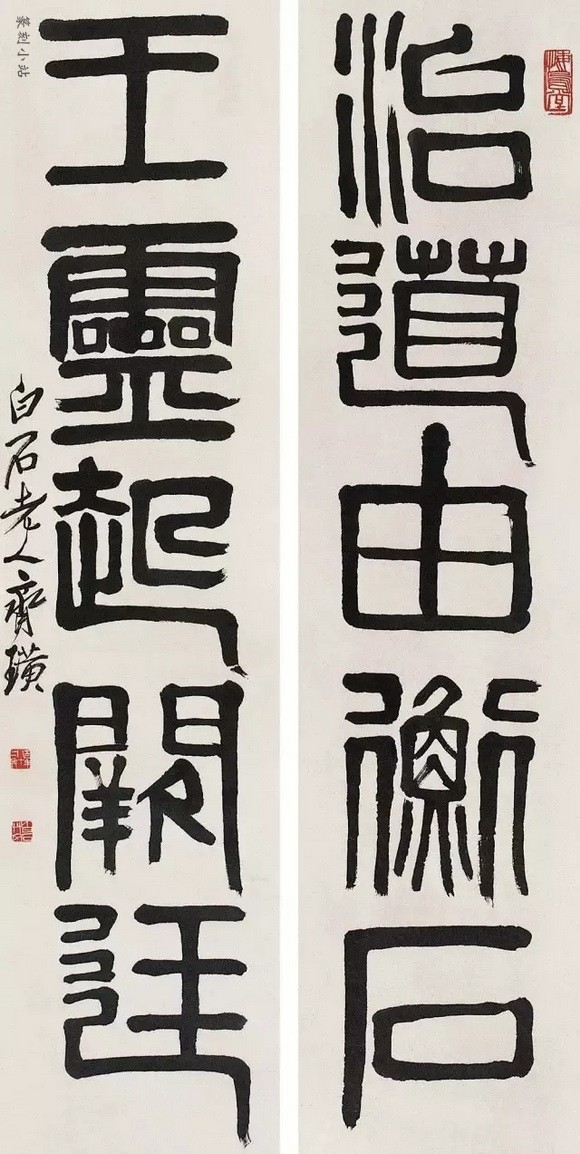 治道由衡石
王靈起闕廷
白石老人齊璜
篆刻小站
悔烏堂